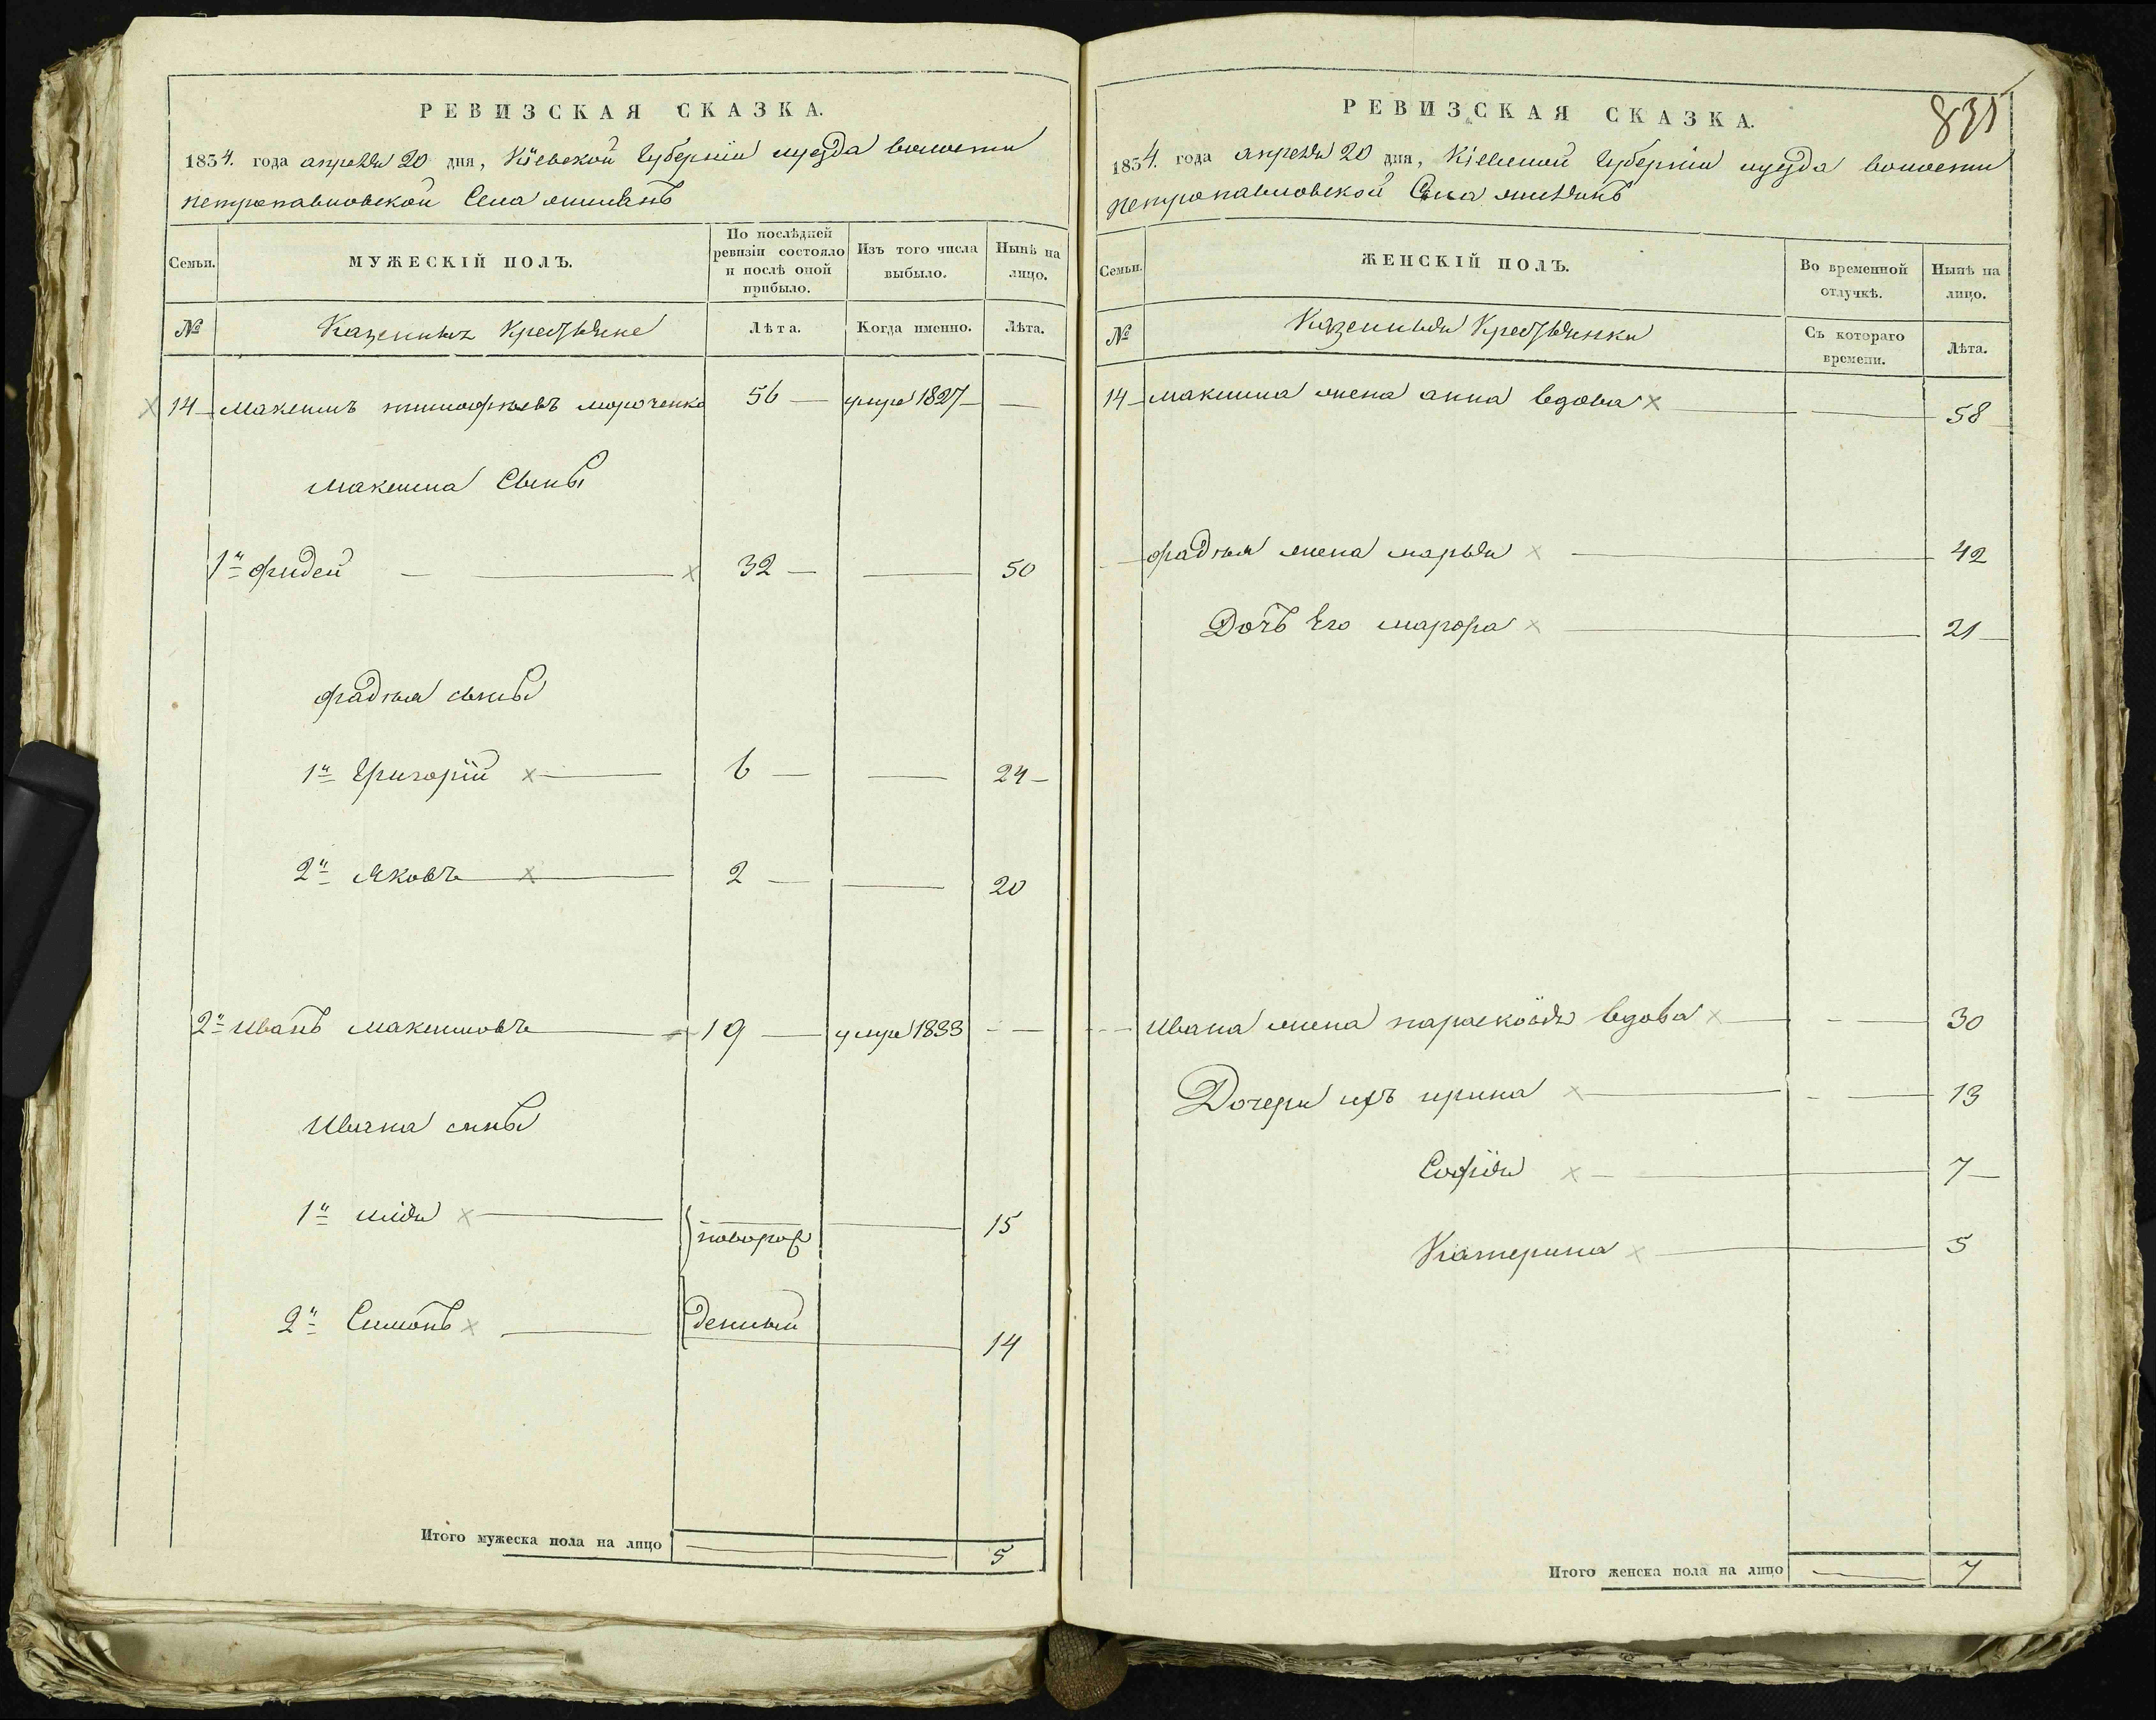 РЕВИЗСКАЯ СКАЗКА.
1834. года апреля 20 дня, Кіевской Губерніи уезда волости
петропавловской Села
Семьи. МУЖЕСКІЙ ПОЛЪ. По послѣдней ревизіи состояло и послѣ оной прибыло. Изъ того числа выбыло. Нынѣ на лицо.
№ Казенные Крестьяне Лѣта. Когда именно. Лѣта.
14 Максимъ тимофѣевъ мороченко 56 умре 1827
Максима Сыны
1й фадей 32 50
фадея сыны
1й Григорій 6 24
2й Яковъ 2 20
2й Иванъ максимовъ 19 умре 1833
Ивана сыны
1й илія новорож 15
2й Симонъ денныи 14
Итого мужеска пола на лицо 5
831
РЕВИЗСКАЯ СКАЗКА.
1834. года апреля 20 дня, Кіевской Губерніи уезда волости
петропавловской Села
Семьи. ЖЕНСКІЙ ПОЛЪ. Во временной отлучкѣ. Нынѣ на лицо.
№ Казенныя Крестьянки Съ котораго времени. Лѣта.
14 максима жена анна вдова 58
фадея жена марья 42
Дочь Его 21
Ивана жена парасковія вдова 30
Дочери ихъ ирина 13
Софія 7
Катерина 5
Итого женска пола на лицо 7